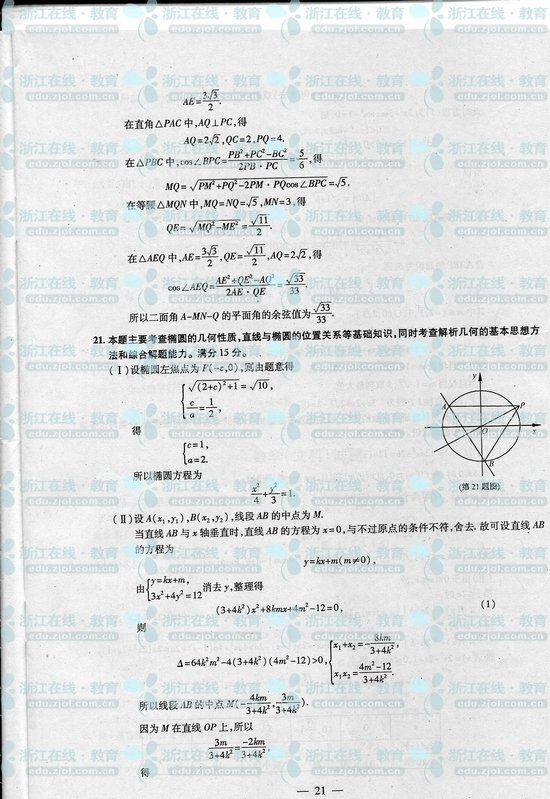 AE=\frac{3\sqrt{3}}{2}.
在直角△PAC 中,AQ⊥PC,得
AQ=2\sqrt{2},QC=2,PQ=4,
在△PBC 中,cos∠BPC=\frac{PB^2+PC^2-BC^2}{2PB·PC}=\frac{5}{6},得
MQ=\sqrt{PM^2+PQ^2-2PM·PQcos∠BPC}=\sqrt{5}.
在等腰△MQN 中,MQ=NQ=\sqrt{5},MN=3,得
QE=\sqrt{MQ^2-ME^2}=\frac{\sqrt{11}}{2}.
在△AEQ 中,AE=\frac{3\sqrt{3}}{2},QE=\frac{\sqrt{11}}{2},AQ=2\sqrt{2},得
cos∠AEQ=\frac{AE^2+QE^2-AQ^2}{2AE·QE}=\frac{\sqrt{33}}{33}.
所以二面角 A-MN-Q 的平面角的余弦值为\frac{\sqrt{33}}{33}.
21. 本题主要考查椭圆的几何性质,直线与椭圆的位置关系等基础知识,同时考查解析几何的基本思想方
法和综合解题能力。满分 15 分。
(Ⅰ)设椭圆左焦点为 F(-c,0),则由题意得
\sqrt{(2+c)^2+1}=\sqrt{10},
\frac{c}{a}=\frac{1}{2},
得
c=1,
a=2.
所以椭圆方程为
\frac{x^2}{4}+\frac{y^2}{3}=1.
y
A
P
O
x
B
(第 21 题图)
(Ⅱ)设 A(x_1,y_1),B(x_2,y_2),线段 AB 的中点为 M.
当直线 AB 与 x 轴垂直时,直线 AB 的方程为 x=0,与不过原点的条件不符,舍去. 故可设直线 AB
的方程为
y=kx+m(m≠0),
由{y=kx+m, 3x^2+4y^2=12 消去 y,整理得
(3+4k^2)x^2+8kmx+4m^2-12=0, (1)
则
Δ=64k^2m^2-4(3+4k^2)(4m^2-12)>0,{x_1+x_2=-\frac{8km}{3+4k^2}, x_1x_2=\frac{4m^2-12}{3+4k^2}.
所以线段 AB 的中点 M(-\frac{4km}{3+4k^2},\frac{3m}{3+4k^2}).
因为 M 在直线 OP 上,所以
\frac{3m}{3+4k^2}=\frac{-2km}{3+4k^2},
得
— 21 —
浙江在线·教育
edu.zjol.com.cn